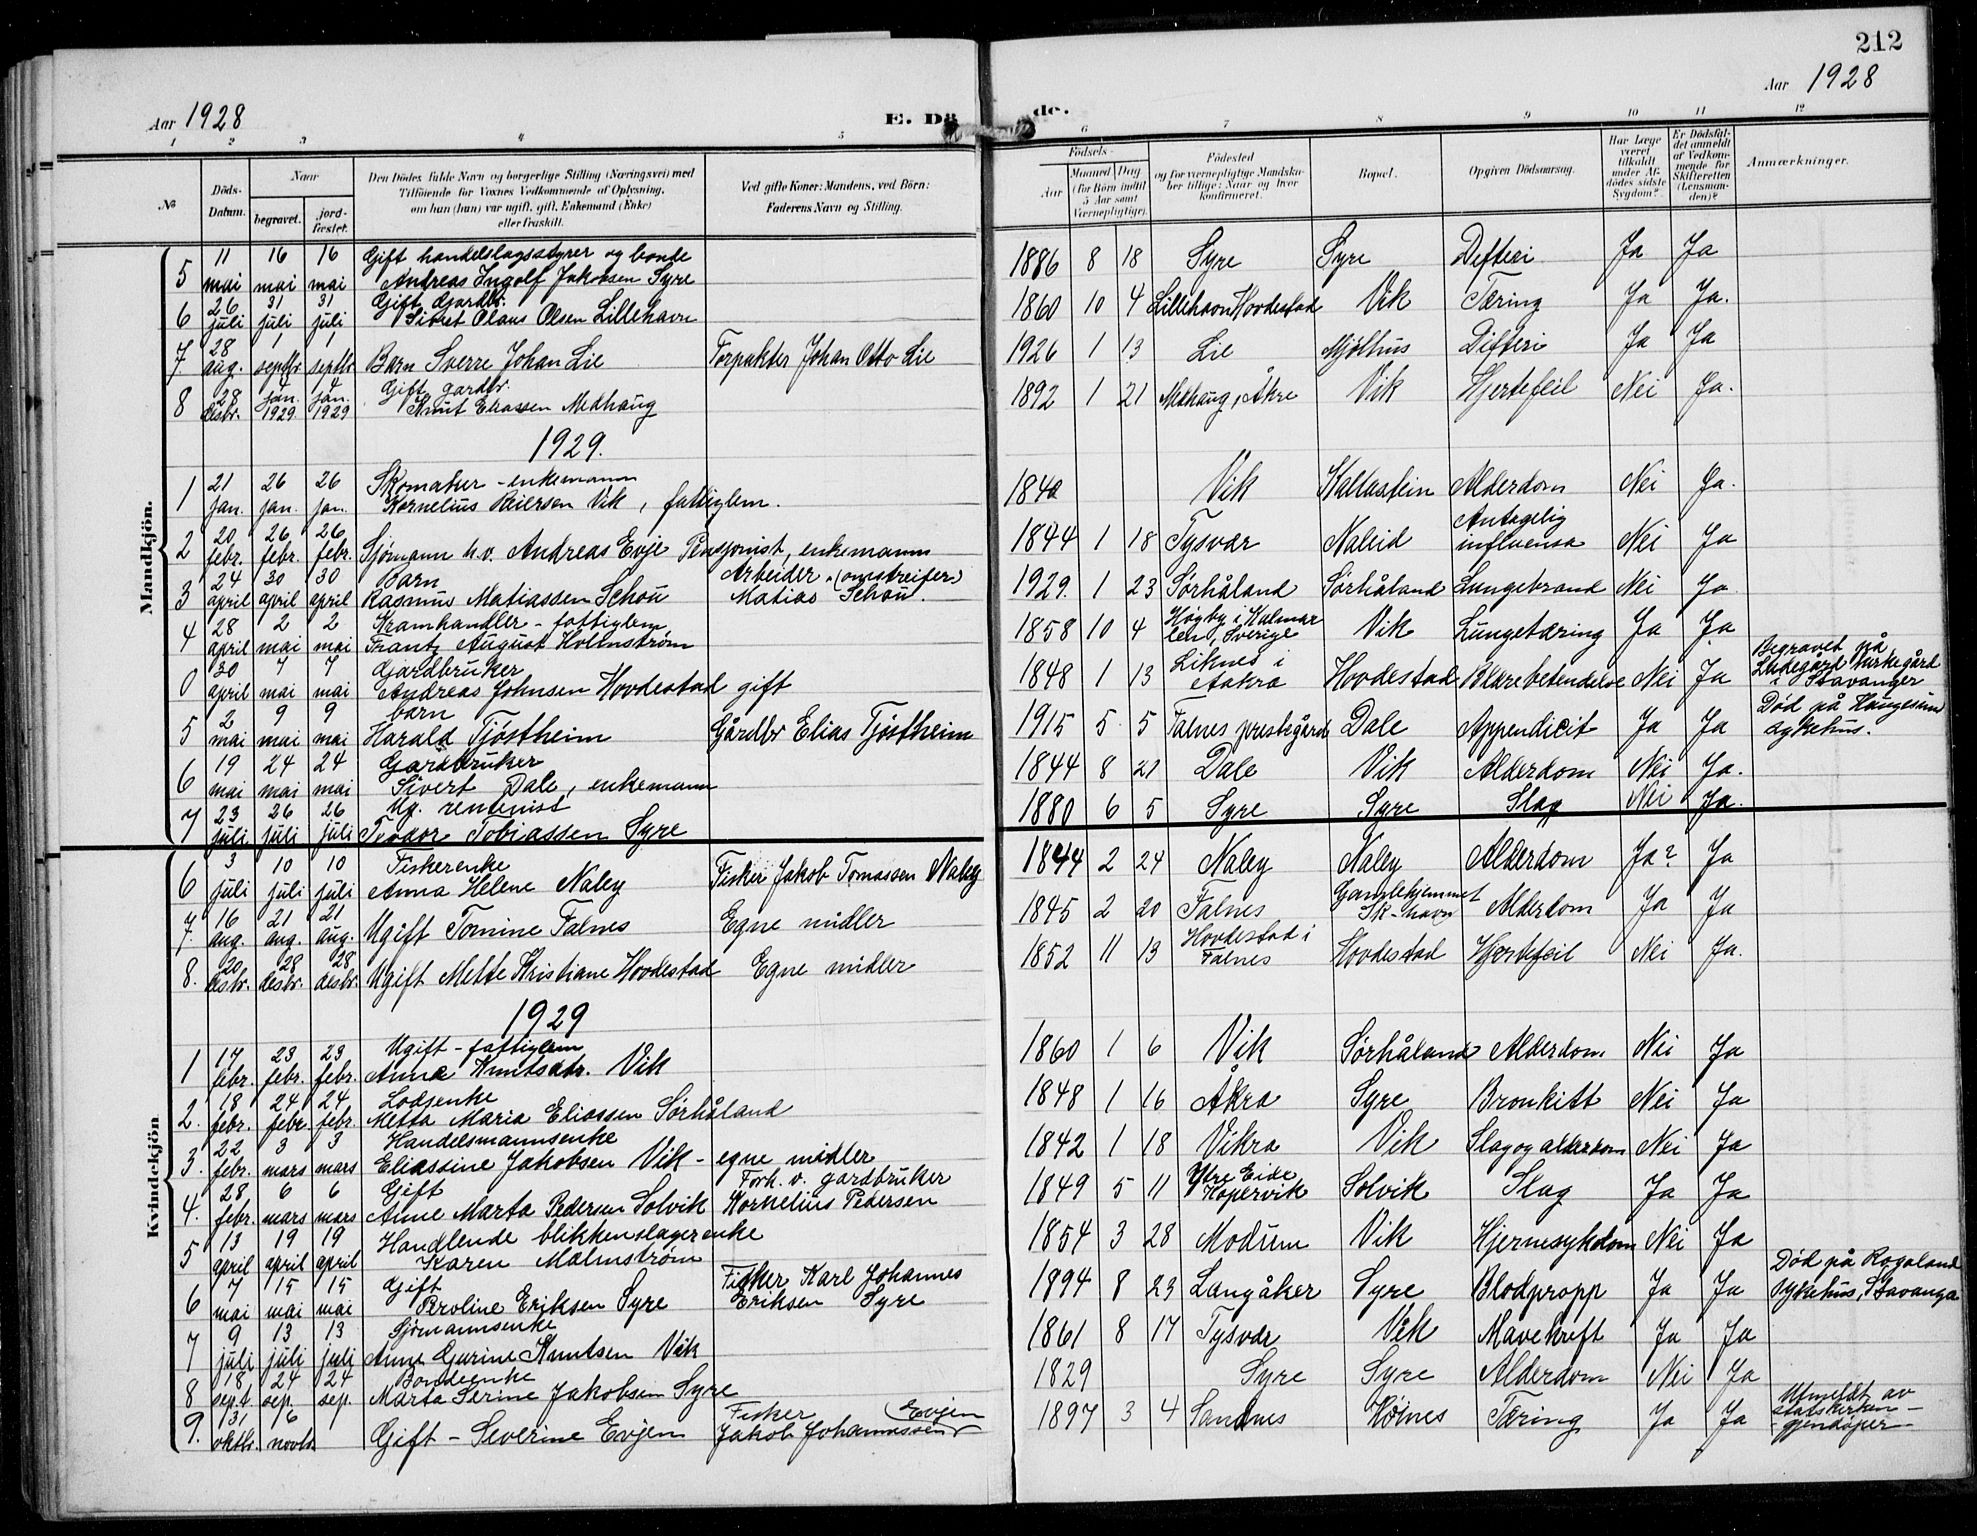 212
Aar 1928
E. Dö
de.
Aar 1928
1 2 3 4 5 6 7 8 9 10 11 12
№
Döds-Datum.
Naar
begravet.
jord-fæstet.
Den Dödes fulde Navn og borgerlige Stilling (Næringsvei) med
Tilföiende for Voxnes Vedkommende af Oplysning,
om han (hun) var ugift, gift, Enkemand (Enke)
eller fraskilt.
Ved gifte Koner: Mandens, ved Börn:
Faderens Navn og Stilling.
Födsels-
Aar
Maaned Dag
(for Börn indtil
5 Aar samt
Værnepligtige).
Födested
og for værnepligtige Mandska-
ber tillige: Naar og hvor
konfirmeret.
Bopæl.
Opgiven Dödsaarsag.
Har Læge
været
tilkaldt
under Af-
dödes sidste
Sygdom?
Er Dödsfal-
det anmeldt
af Vedkom-
mende for
Skifteretten
(Lensman-
den)?
Anmærkninger.
Mandkjön.
5 11 mai 16 mai 16 mai Gift handelslagsstyrer og bonde
Andreas Ingolf Jakobsen Syre 1886 8 18 Syre Syre Difteri Ja Ja
6 26 juli 31 juli 31 juli Gift Gardbr.
Sivert Olaus Olsen Lillehavn 1860 10 4 Lillehavn Hovdestad Vik Tæring Ja Ja.
7 28 aug. 1 septbr 1 septbr Barn Sverre Johan Lie Forpakter Johan Otto Lie 1926 1 13 Lie Mjølhus Difteri Ja Ja
8 28 desbr. 4 jan. 1929 4 jan. 1929 Gift gardbr.
Knut Eliassen Medhaug 1892 1 21 Medhaug, Åkre Vik Hjertefeil Nei Ja.
1929.
1 21 jan. 26 jan. 26 jan. Skomaker - enkemann
Kornelius Reiersen Vik, fattiglem. 1840 Vik Kallastein Alderdom Nei Ja.
2 20 febr. 26 febr. 26 febr. Sjømann h.v. Andreas Evje Pensjonist, enkemann 1844 1 18 Tysvær Naleid Antagelig influensa Nei Ja
3 24 april 30 april 30 april Barn
Rasmus Matiassen Schou Arbeider (omstreifer)
Matias Schou. 1929. 1 23 Sørhåland Sørhåland Lungebrand Nei Ja
4 28 april 2 mai 2 mai Kramhandler - fattiglem
Frantz August Holmstrøm 1858 10 4 Høgby i Kalmar
len, Sverige Vik Lungetæring Ja Ja
0 30 april 7 mai 7 mai Gardbruker
Andreas Johnsen Hovdestad gift 1848 1 13 Liknes i
Aakra Hovdestad Blærebetendelse Nei Ja Begravet på
Ladegård kirkegård
i Stavanger
5 2 mai 9 mai 9 mai barn
Harald Tjøstheim Gårdbr Elias Tjøstheim 1915 5 5 Falnes prestegård Dale Appendicit Ja Ja Død på Haugesund
sykehus.
6 19 mai 24 mai 24 mai Gardbruker
Sivert Dale, enkemann 1844 8 21 Dale Vik Alderdom Nei Ja.
7 23 juli 26 juli 26 juli Ug. rentenist
Teodor Tobiassen Syre 1880 6 5 Syre Syre Slag Nei Ja.
Kvindekjön
6 3 juli 10 juli 10 juli Fiskerenke
Anna Helene Naley Fisker Jakob Tomassen Naley 1844 2 24 Naley Naley Alderdom Ja? Ja
7. 16 aug. 21 aug. 21 aug. Ugift Tomine Falnes Egne midler 1845 2 20 Falnes Gamlehjemmet
Sk-havn Alderdom Ja Ja
8. 20 desbr. 28 desbr. 28 desbr. Ugift Mette Kristiane Hovdestad Egne midler 1852 11 13 Hovdestad i
Falnes Hovdestad Hjertefeil Nei Ja.
1929
1 17 febr. 23 febr. 23 febr. Ugift - fattiglem
Anna Knutsdtr. Vik 1860 1 6 Vik Sørhåland Alderdom Nei Ja
2. 18 febr. 24 febr. 24 febr. Losenke
Metta Maria Eliassen Sørhåland 1848 1 16 Åkra Syre Bronkitt Nei Ja
3. 22 febr. 3 mars 3 mars Handelsmannsenke
Eliassine Jakobsen Vik - egne midler 1842 1 18 Vikra Vik Slag og alderdom Nei Ja
4. 28 febr. 6 mars 6 mars Gift
Anne Marta Pedersen Solvik Forh. v. gardbruker
Kornelius Pedersen 1849 5 11 Ytre Eide
Kopervik Solvik Slag Ja Ja
5 13 april 19 april 19 april Handlende blikkenslagerenke
Karen Malmstrøm 1854 3 28 Modum Vik Hjernesykdom Nei Ja
6 7 mai 15 mai 15 mai Gift
Peroline Eriksen Syre Fisker Karl Johannes
Eriksen Syre 1894 8 23 Langåker Syre Blodpropp Ja Ja Død på Rogaland
sykehus, Stavanger
7 9 juli 13 juli 13 juli Sjømannsenke
Anne Gurine Knutsen Vik 1861 8 17 Tysvær Vik Mavekreft Ja Ja
8 18 sept 24 sep. 24 sep. Bondeenke
Marta Serine Jakobsen Syre 1829 Syre Syre Alderdom Nei Ja
9. 31 oktbr. 6 novbr. Gift - Severine Evjen Fisker
Jakob Johannessen Evjen 1897 3 4 Sandnes Hølnes Tæring Ja Ja Utmeldt av
statskirken -
- gjendøper -